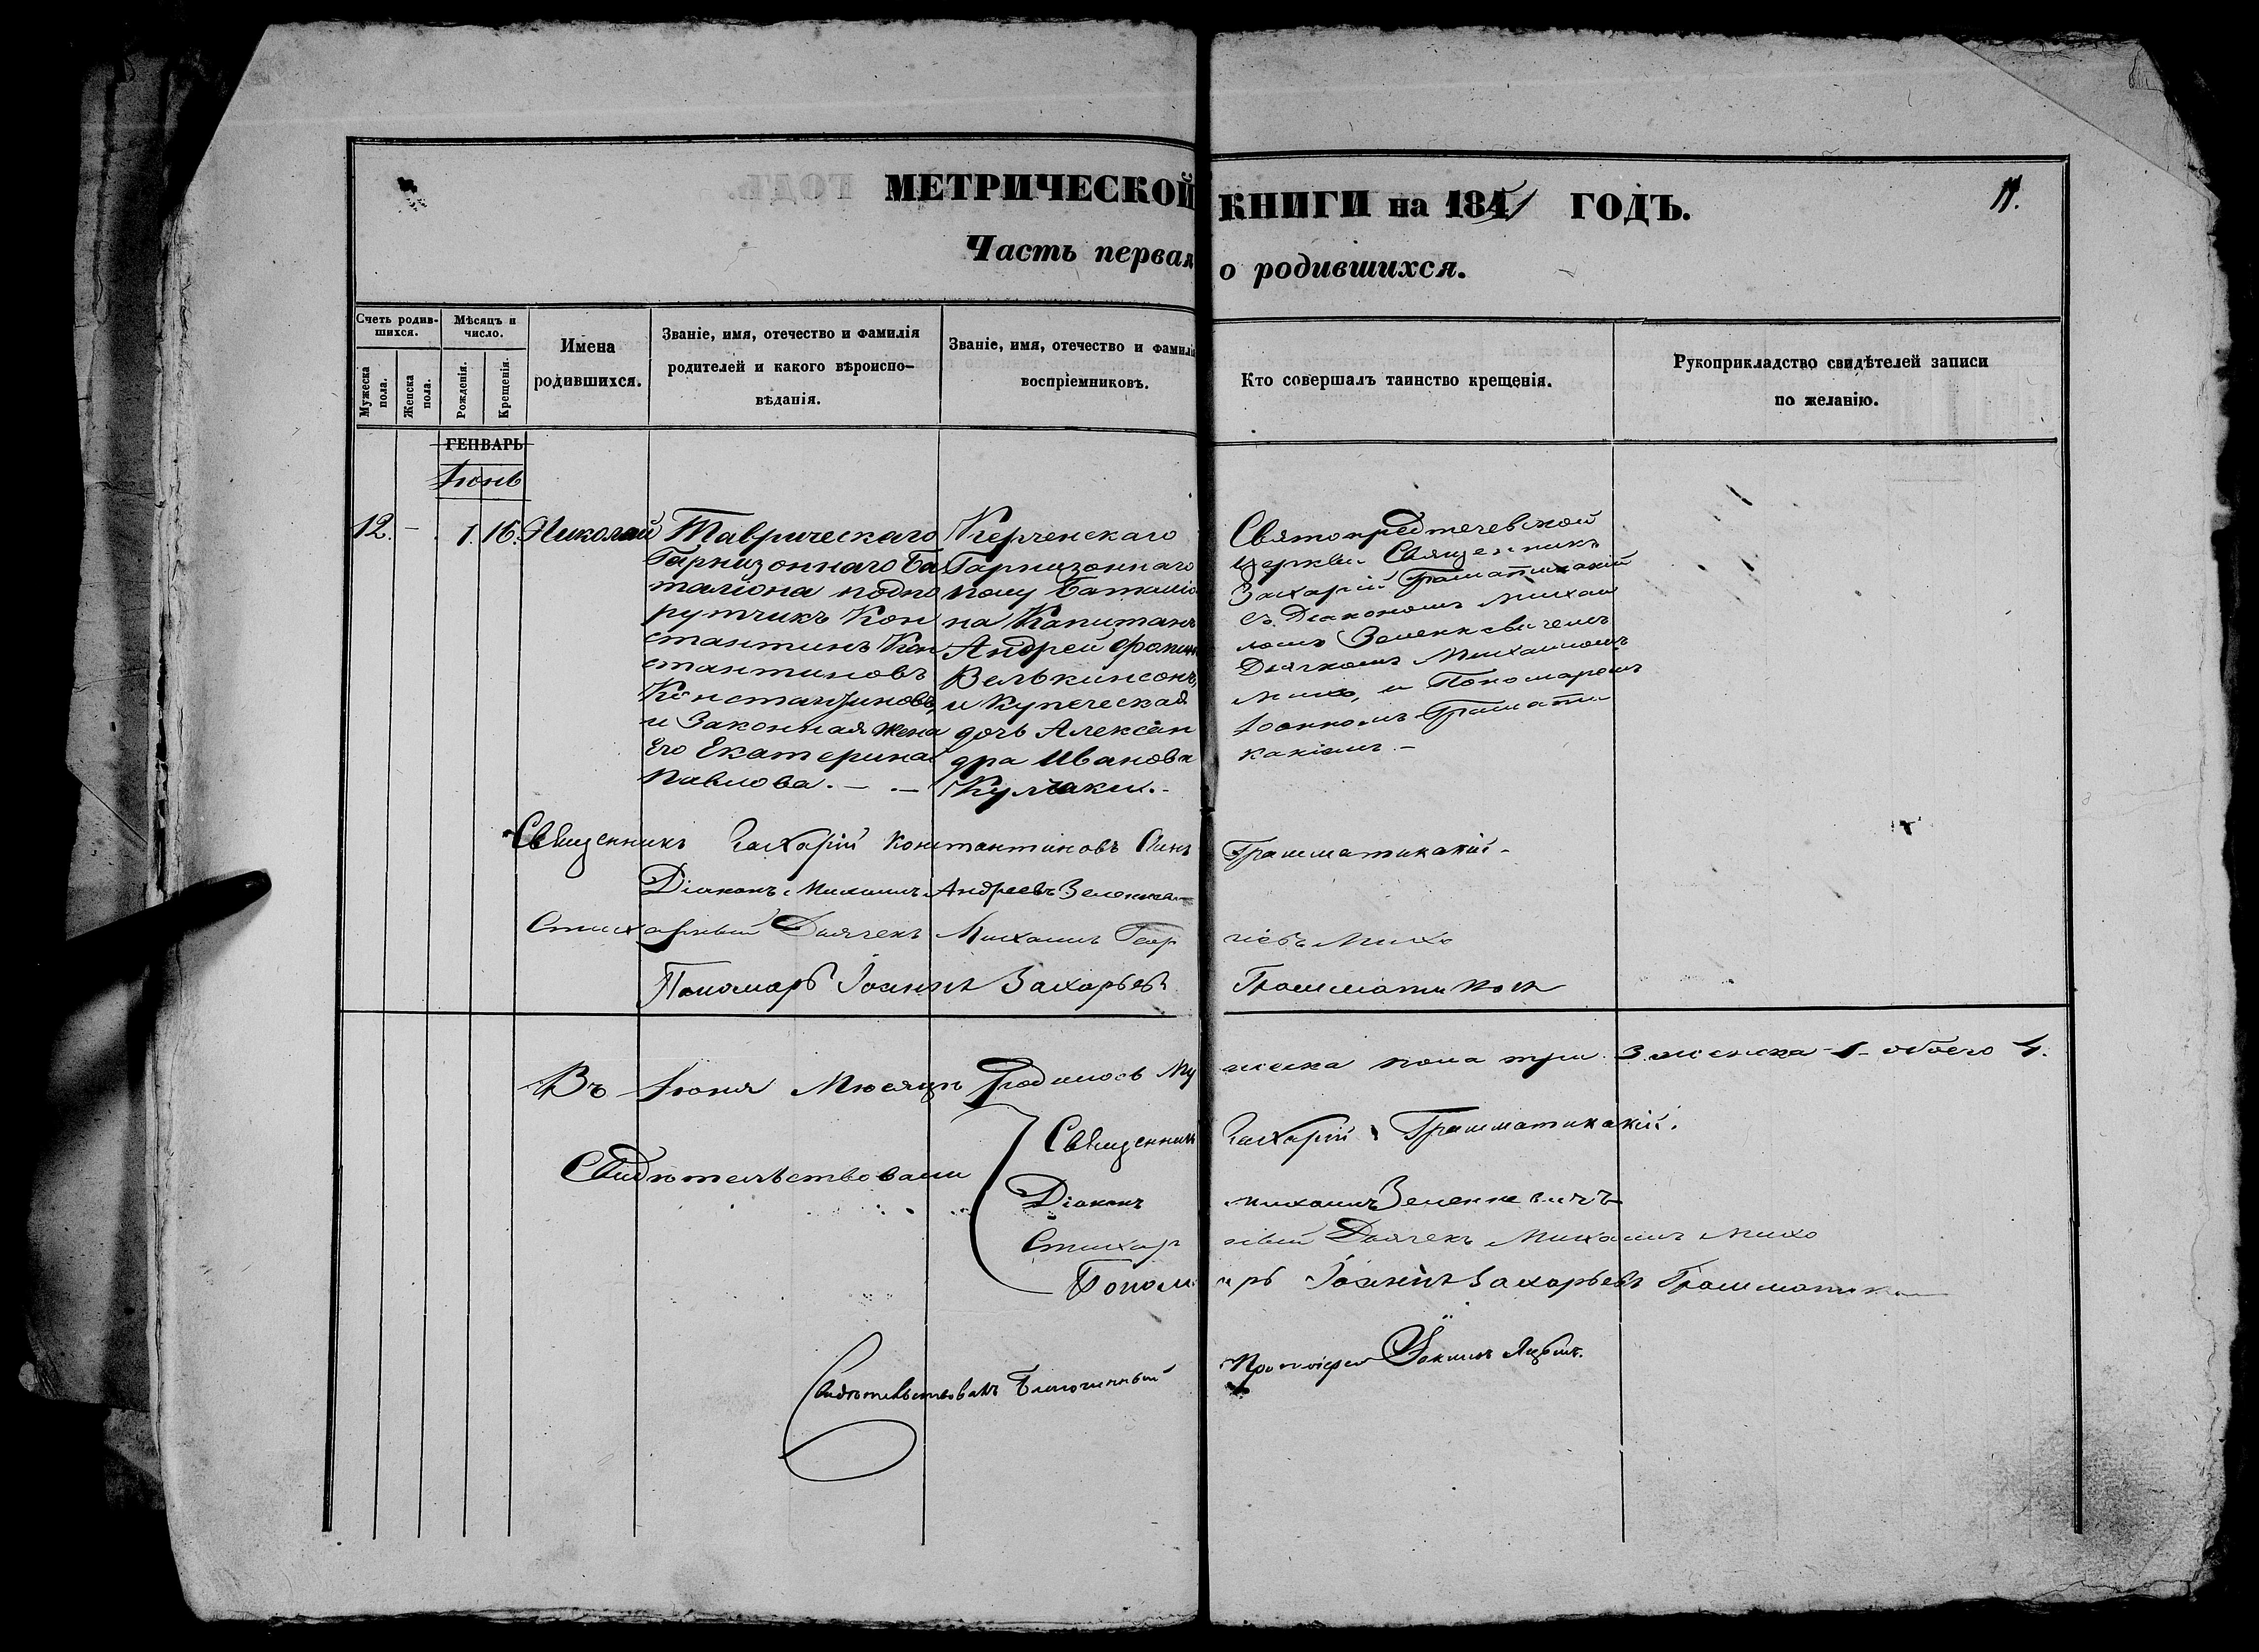 МЕТРИЧЕСКОЙ КНИГИ на 1851 ГОДЪ.
11.
Часть первая о родившихся.
Счетъ родившихся.
Мѣсяцъ и число.
Мужеска пола.
Женска пола.
Рожденія.
Крещенія.
Имена родившихся.
Званіе, имя, отечество и фамилія
родителей и какого вѣроиспо-
вѣданія.
Званіе, имя, отечество и фамилія
воспріемниковъ.
Кто совершалъ таинство крещенія.
Рукоприкладство свидѣтелей записи
по желанію.
ГЕНВАРЬ
Іюнь
12. - 1. 16. Николай
Таврическаго
Гарнизоннаго Ба
таліона подпо
рутчикъ Кон
стантинъ Кон
стантиновъ
Константиновъ,
и Законная жена
Его Екатерина
Павлова. - -
Керченскаго
Гарнизоннаго
полу Баталіо
на Капитанъ
Андрей
Велькинсонъ,
и Купеческая
дочь Алексан
дра Иванова
Кулчаки.-
Святопредтечевской
церкви Священникъ
Захарій Граматикакій
съ Діакономъ Михаи
ломъ Зеленкевичемъ
Дьячкомъ Михаиломъ
Михо, и Пономаремъ
Іоанномъ Грамати
какіемъ.-
Священникъ Захарій Константиновъ Синъ Грамматикакій-
Діаконъ Михаилъ Андреевъ Зеленкевичъ
Стихарный Дьячекъ Михаилъ Георгіевъ Михо
Пономарь Іоаннъ Захарьевъ Грамматикаки
Въ Іюня Мѣсяцѣ родилось Мужеска пола три 3. женска -1- обоего 4.
Свидѣтельствовали
Священникъ Захарій Грамматикакій.
Діаконъ Михаилъ Зеленкевичъ
Стихарный Дьячекъ Михаилъ Михо
Пономарь Іоаннъ Захарьевъ Грамматикаки
Свидѣтельствовалъ Благочинный Протоіерей